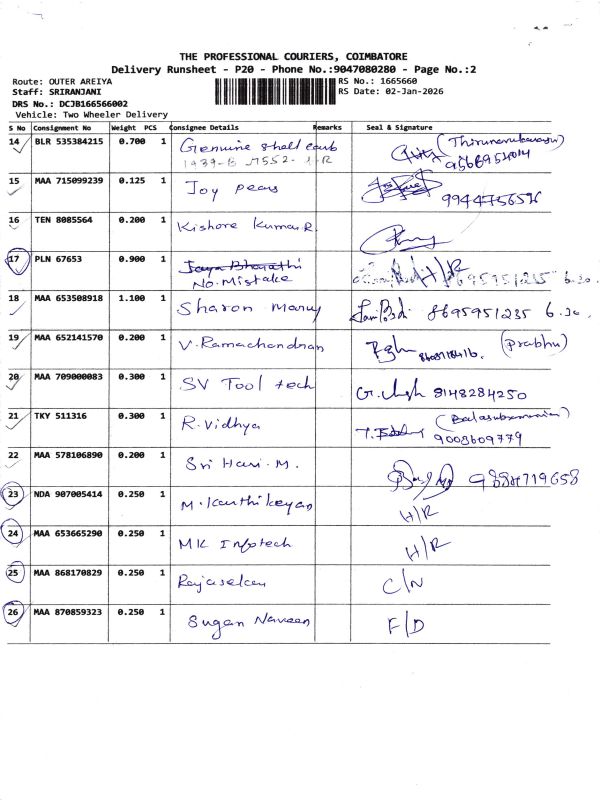 THE PROFESSIONAL COURIERS, COIMBATORE
Delivery Runsheet - P20 - Phone No.:9047080280 - Page No.:2
Route: OUTER AREIYA RS No.: 1665660
Staff: SRIRANJANI RS Date: 02-Jan-2026
DRS No.: DCJB166566002
Vehicle: Two Wheeler Delivery
S No Consignment No Weight PCS Consignee Details Remarks Seal & Signature
14 BLR 535384215 0.700 1 Genuine
15 MAA 715099239 0.125 1 Joy pears 9944756526
16 TEN 8085564 0.200 1 Kishore Kumar.R.
17 PLN 67653 0.900 1 Jaya Bharathi H/R 8695951235 6.30
No. Mistake
18 MAA 653508918 1.100 1 Sharon Marry 8695951235 6.30
19 MAA 652141570 0.200 1 V. Ramachandran (Prabhu)
20 MAA 709000083 0.300 1 SV Tool tech 8148284250
21 TKY 511316 0.300 1 R. Vidhya (Balasubramanian)
9003609779
22 MAA 578106890 0.200 1 Sri Hari. M. 9884719658
23 NDA 907005414 0.250 1 M. Karthikeyan H/R
24 MAA 653665290 0.250 1 MK Infotech H/R
25 MAA 868170829 0.250 1 Rajasekar C/N
26 MAA 870859323 0.250 1 Sugan Naveen F/D